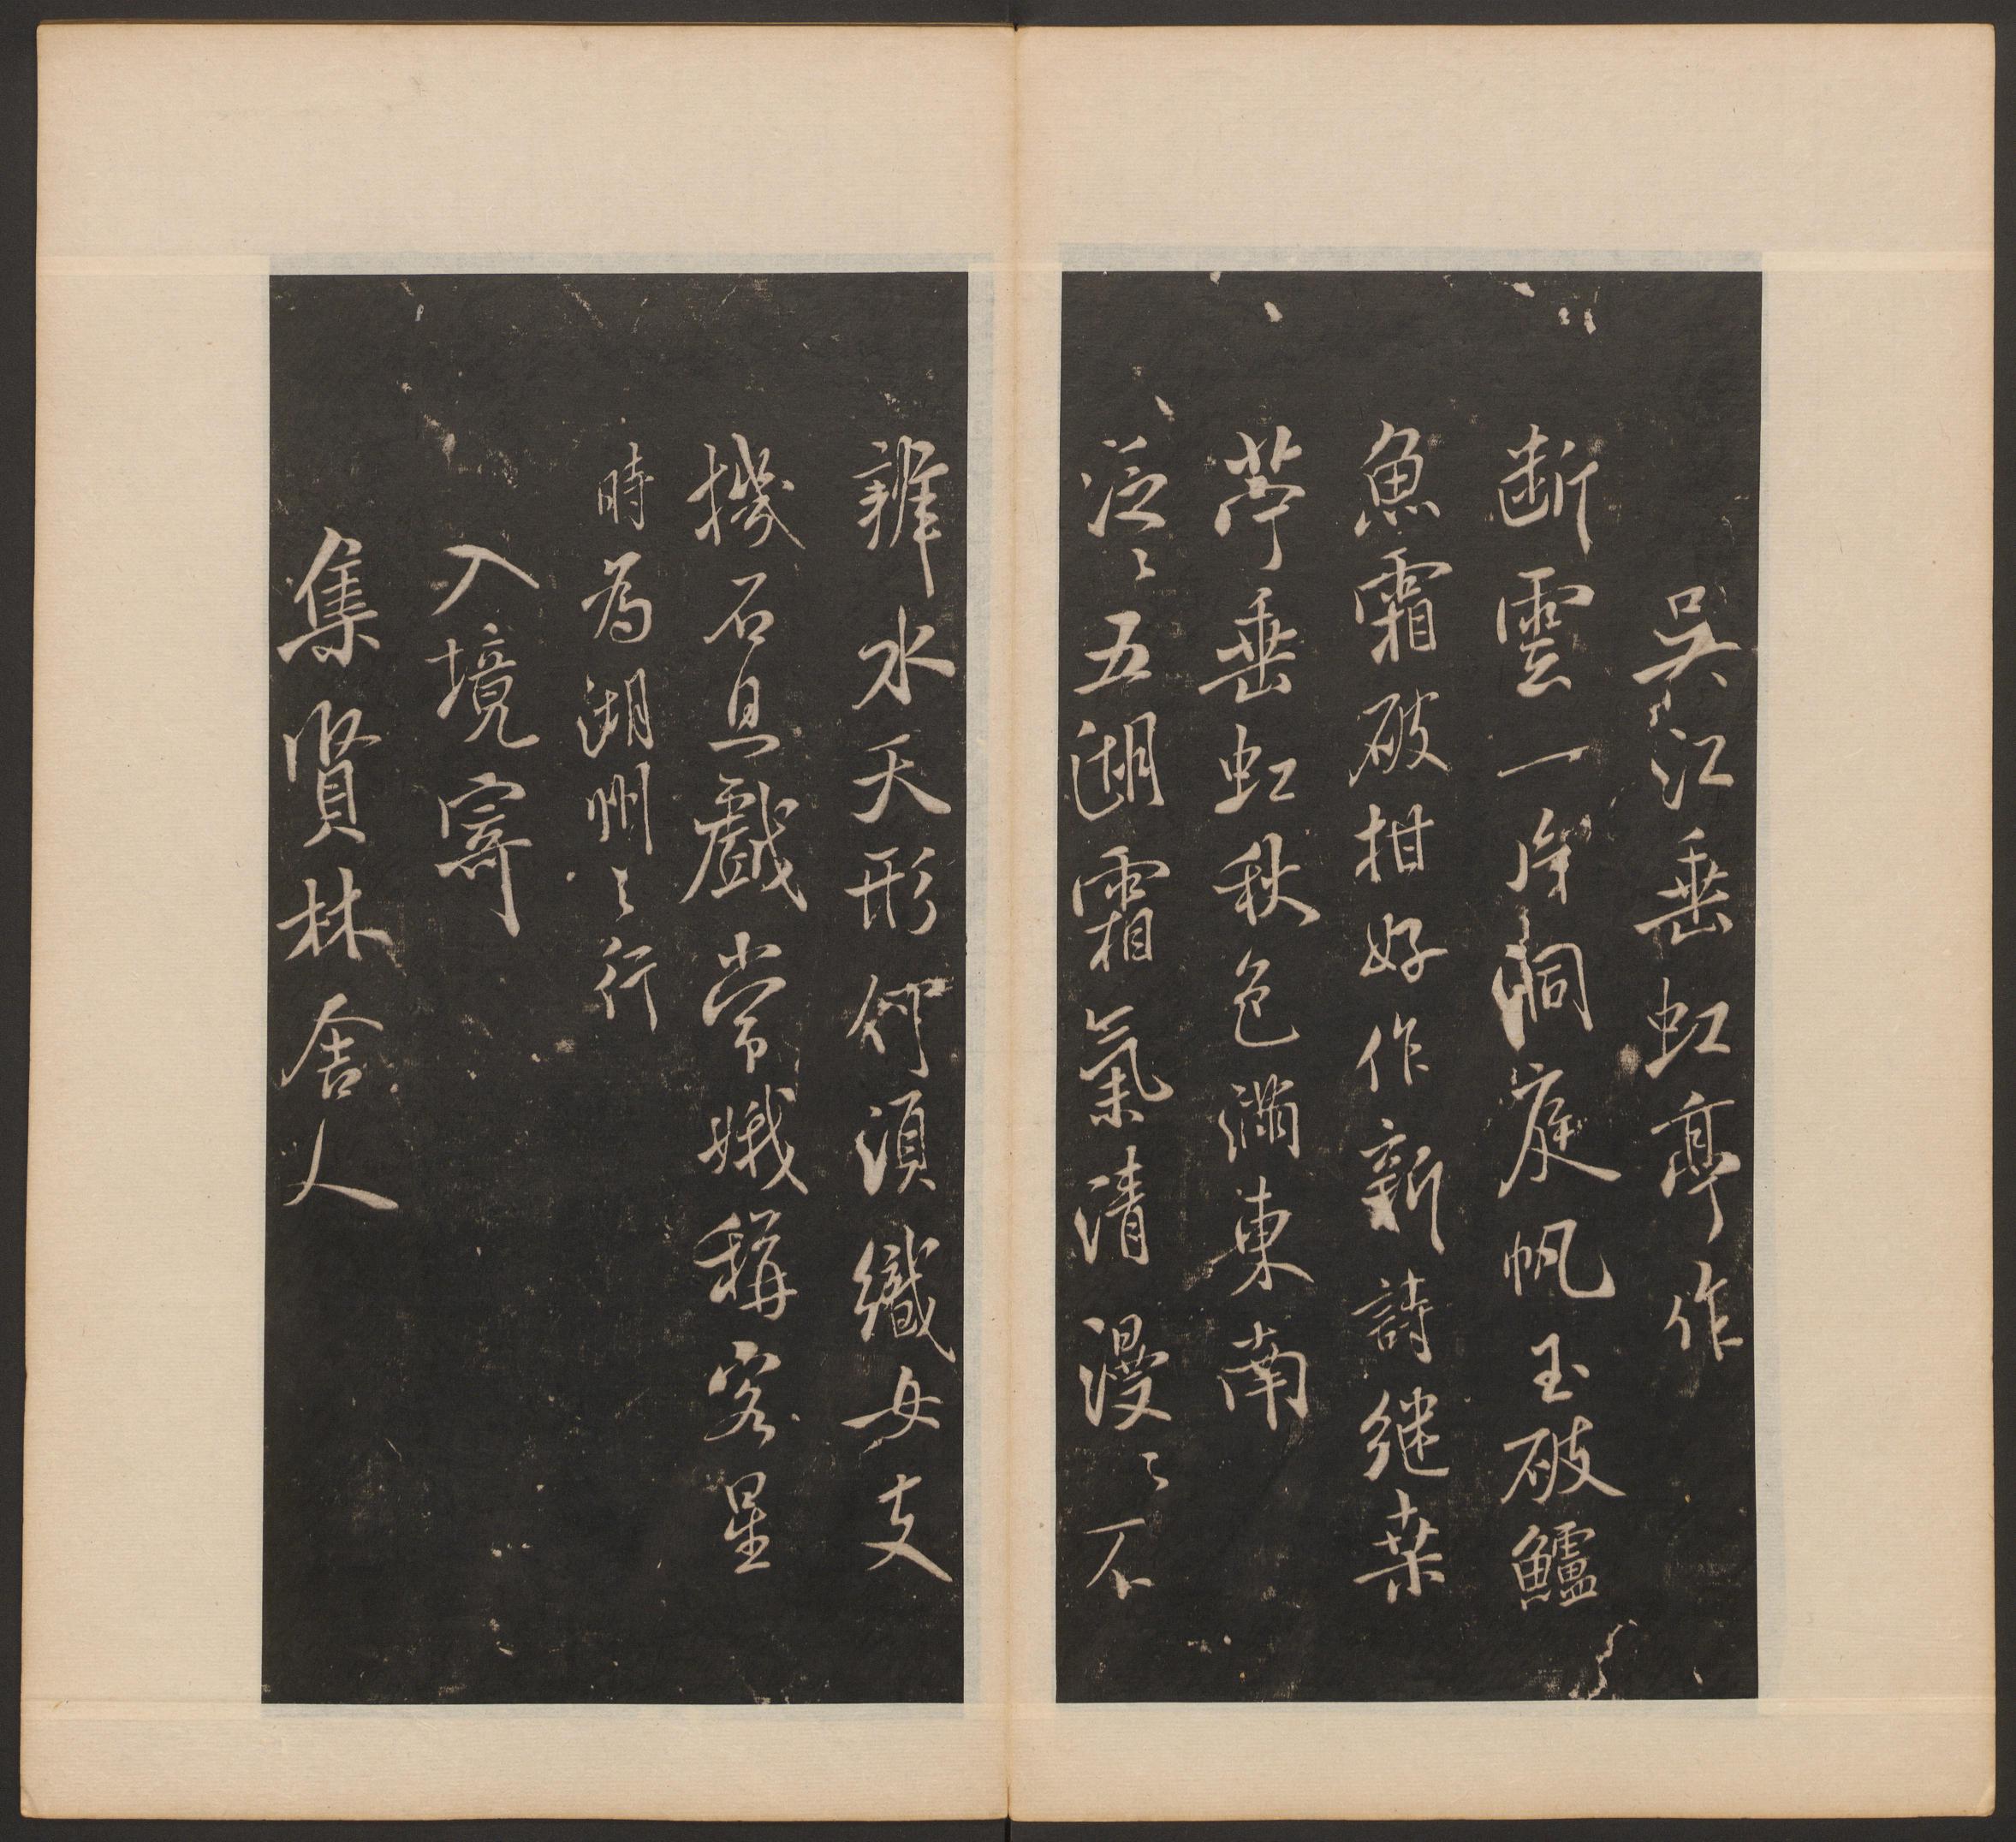 吳江垂虹亭作
断雲一片洞庭帆玉破鱸
魚霜破柑好作新詩继桒
苧垂虹秋色滿東南
泛〻五湖霜氣清漫〻不
辨水天形何須織女支
機石且戲常娥稱客星
時為湖州之行
入境寄
集賢林舍人